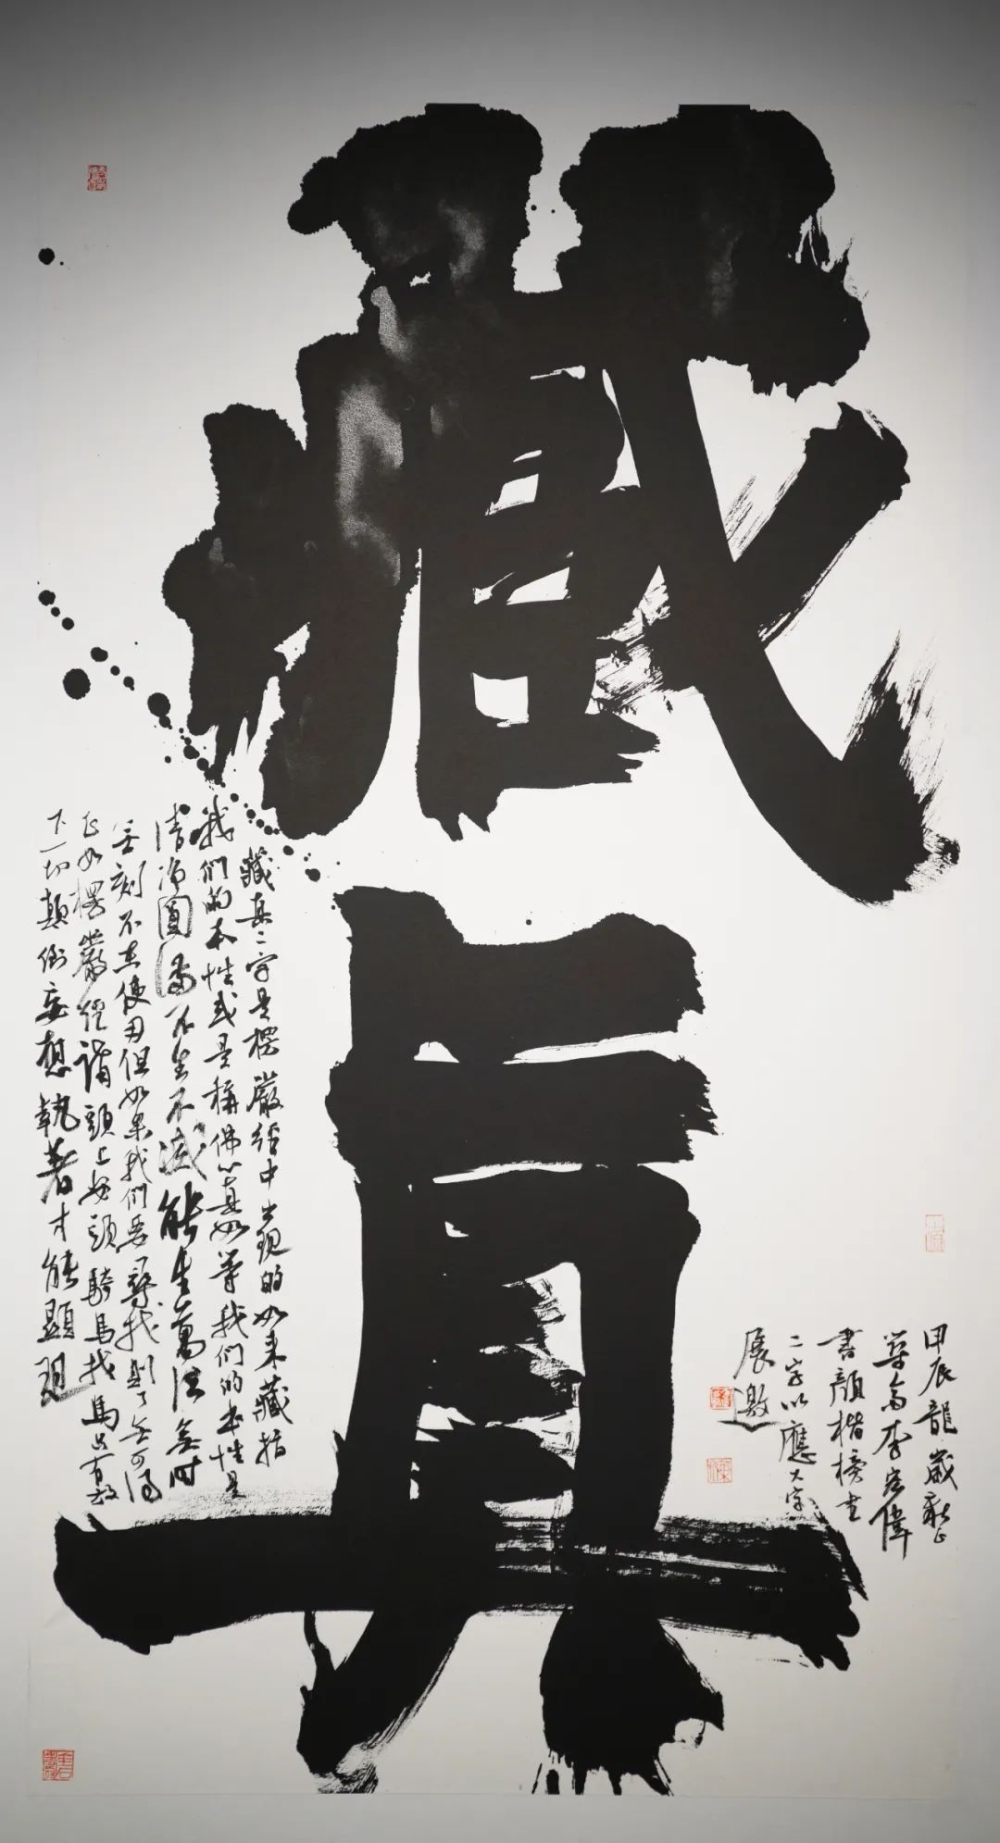 藏真
甲辰龍歲
李宏偉
書顏楷榜書
二字以應大字
展邀
藏真二字是楞嚴經中出現的如來藏指
我們的本性或是稱佛心真如等我們的本性是
清淨圓滿不生不滅能生萬法無時
無刻不在使用但如果我們要尋找則了無可得
正如楞嚴經講頭上安頭騎馬找馬只有放
下一切顛倒妄想執著才能顯現